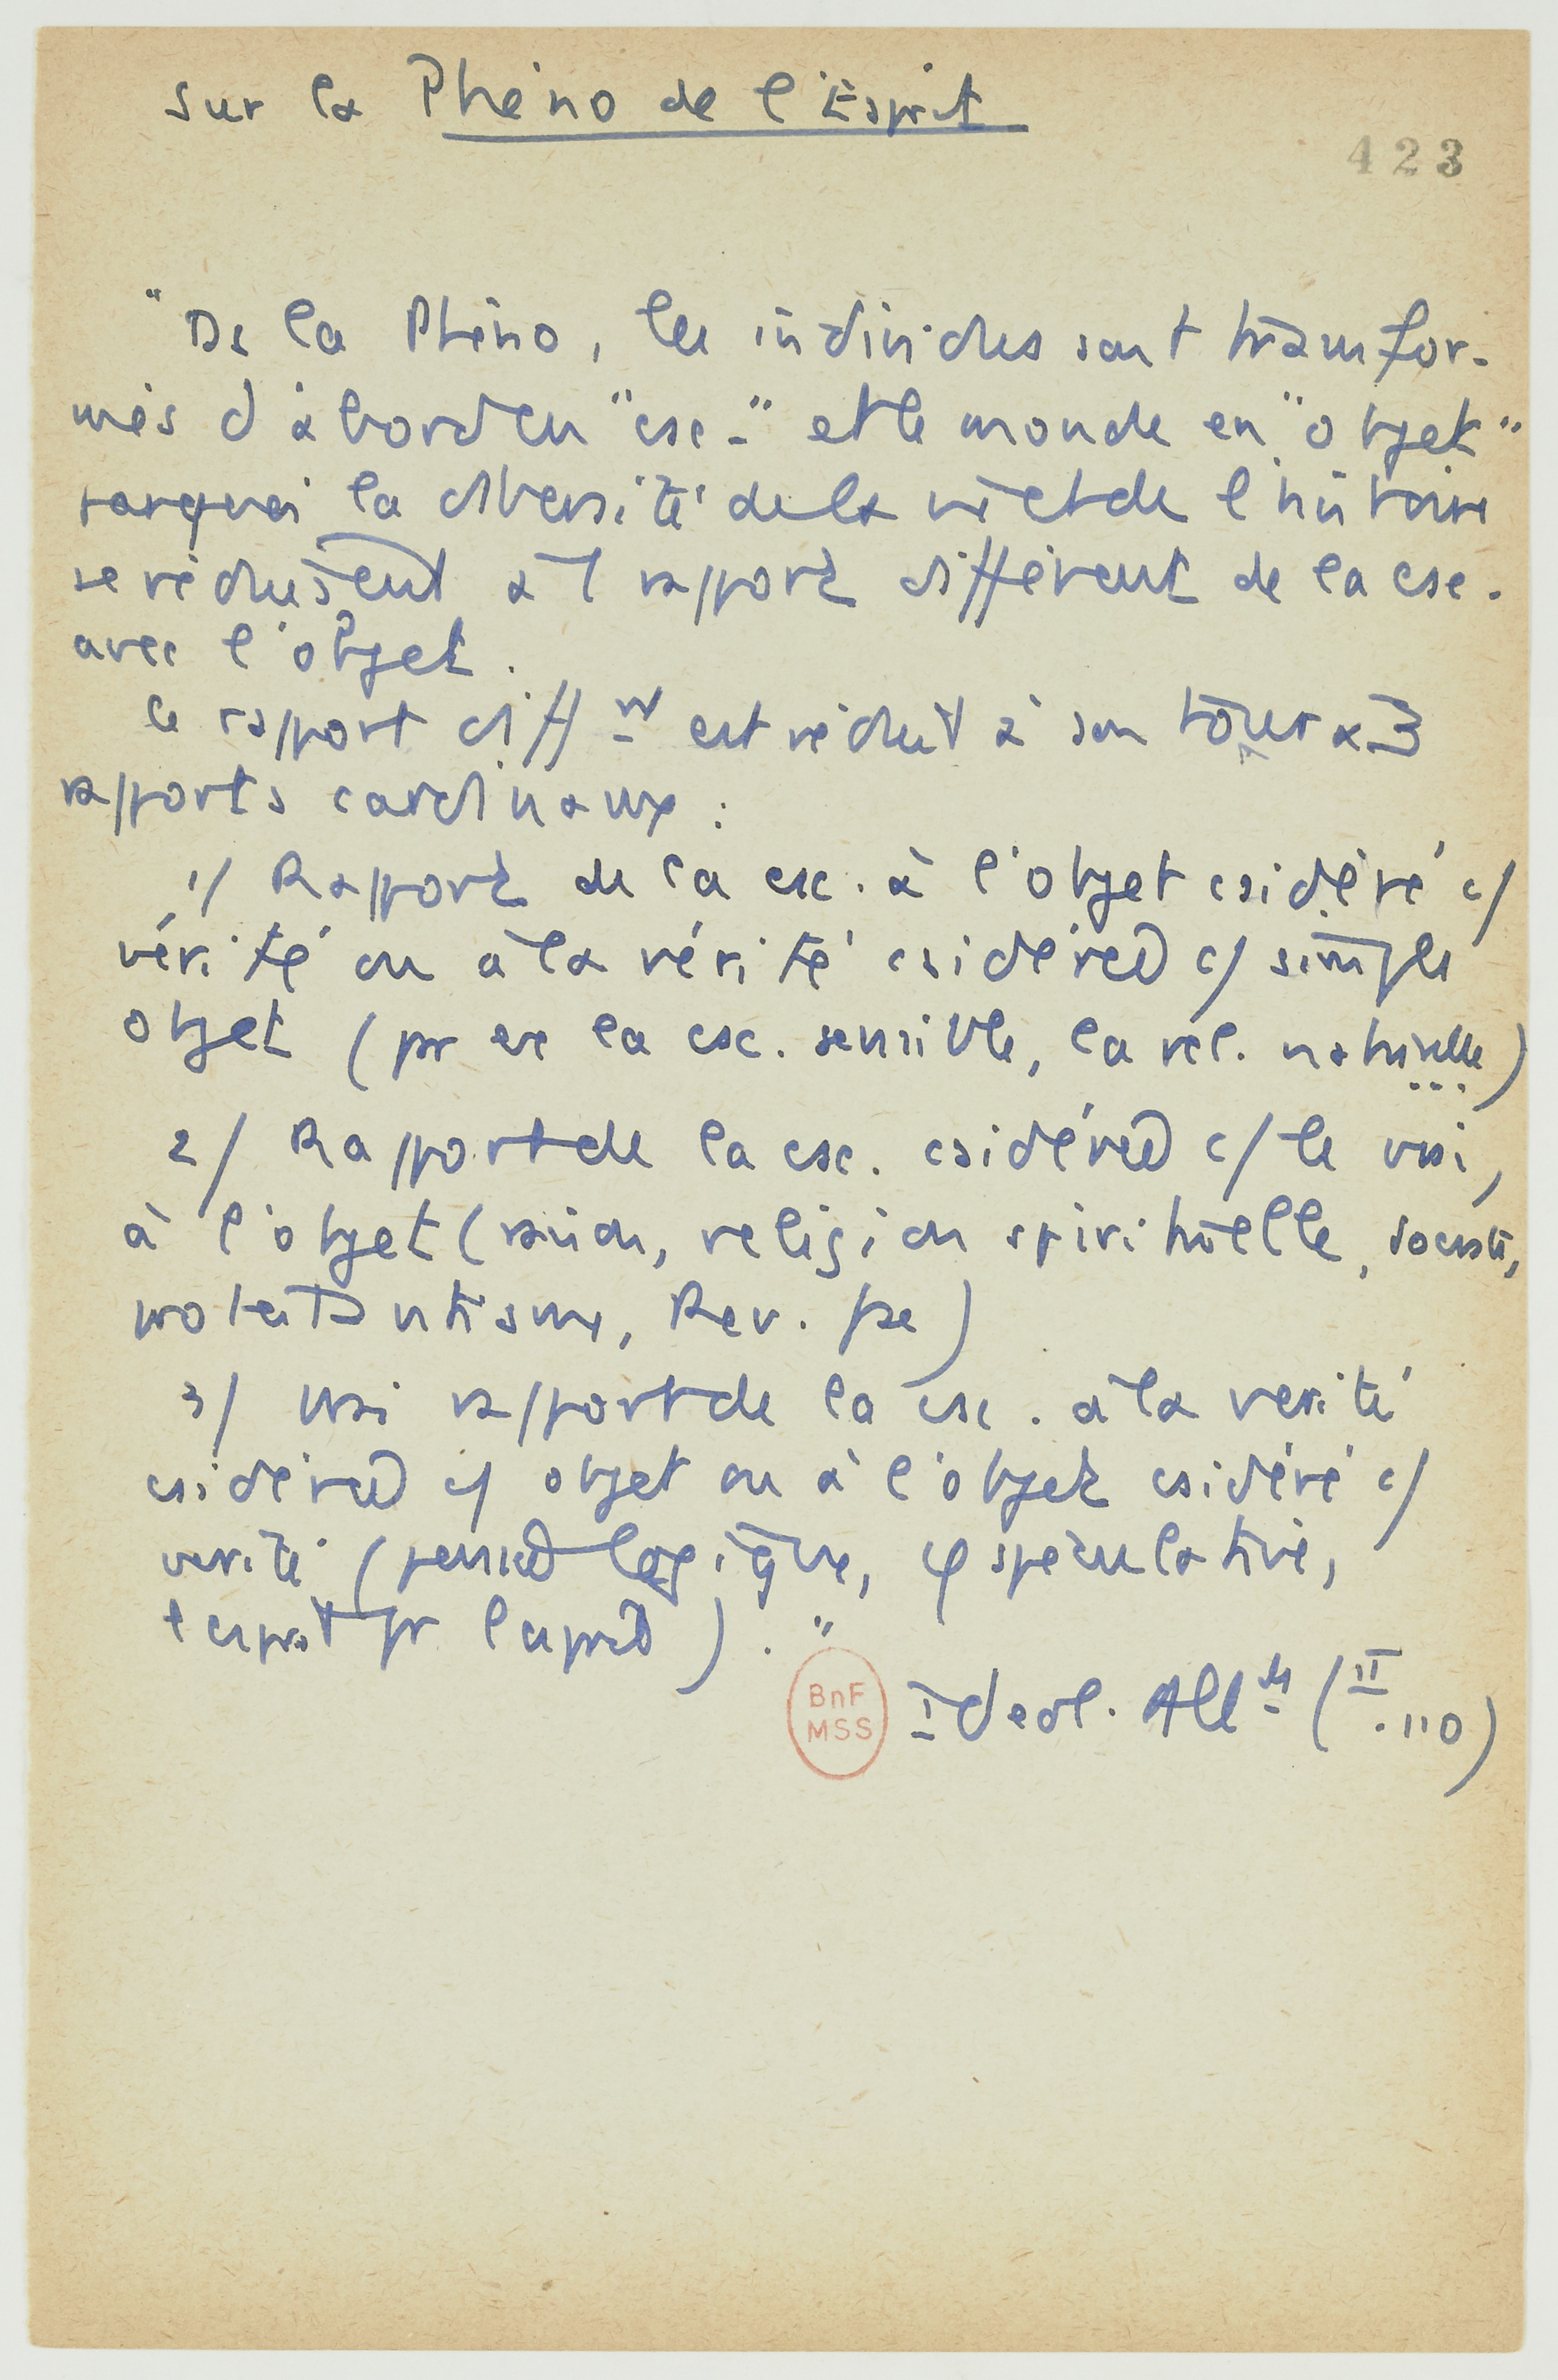 Sur la Phéno de l'Esprit
423
"Ds la Phéno, les individus sont transfor-
més d'abord en "csc-" et le monde en "objet"
la diversité de la vie et de l'histoire
se réduisent à 1 rapport différent de la csc.
avec l'objet.
Ce rapport diff nt est réduit à son tour à 3
rapports cardinaux :
1/ Rapport de la csc. à l'objet csidéré c/
vérité ou à la vérité csidérée c/ simple
objet (pr ex la csc. sensible, la rel. naturelle)
2/ Rapport de la csc. csidérée c/ le vrai,
à l'objet (religion spirituelle,
protestantisme, Rev. fse)
3/ Vrai rapport de la csc. à la vérité
csidérée c/ objet ou à l'objet csidéré c/
vérité (pensée logique, φ spéculative,
l'esprit pr l'esprit)."
BnF
MSS
Ideol. All (II.110)